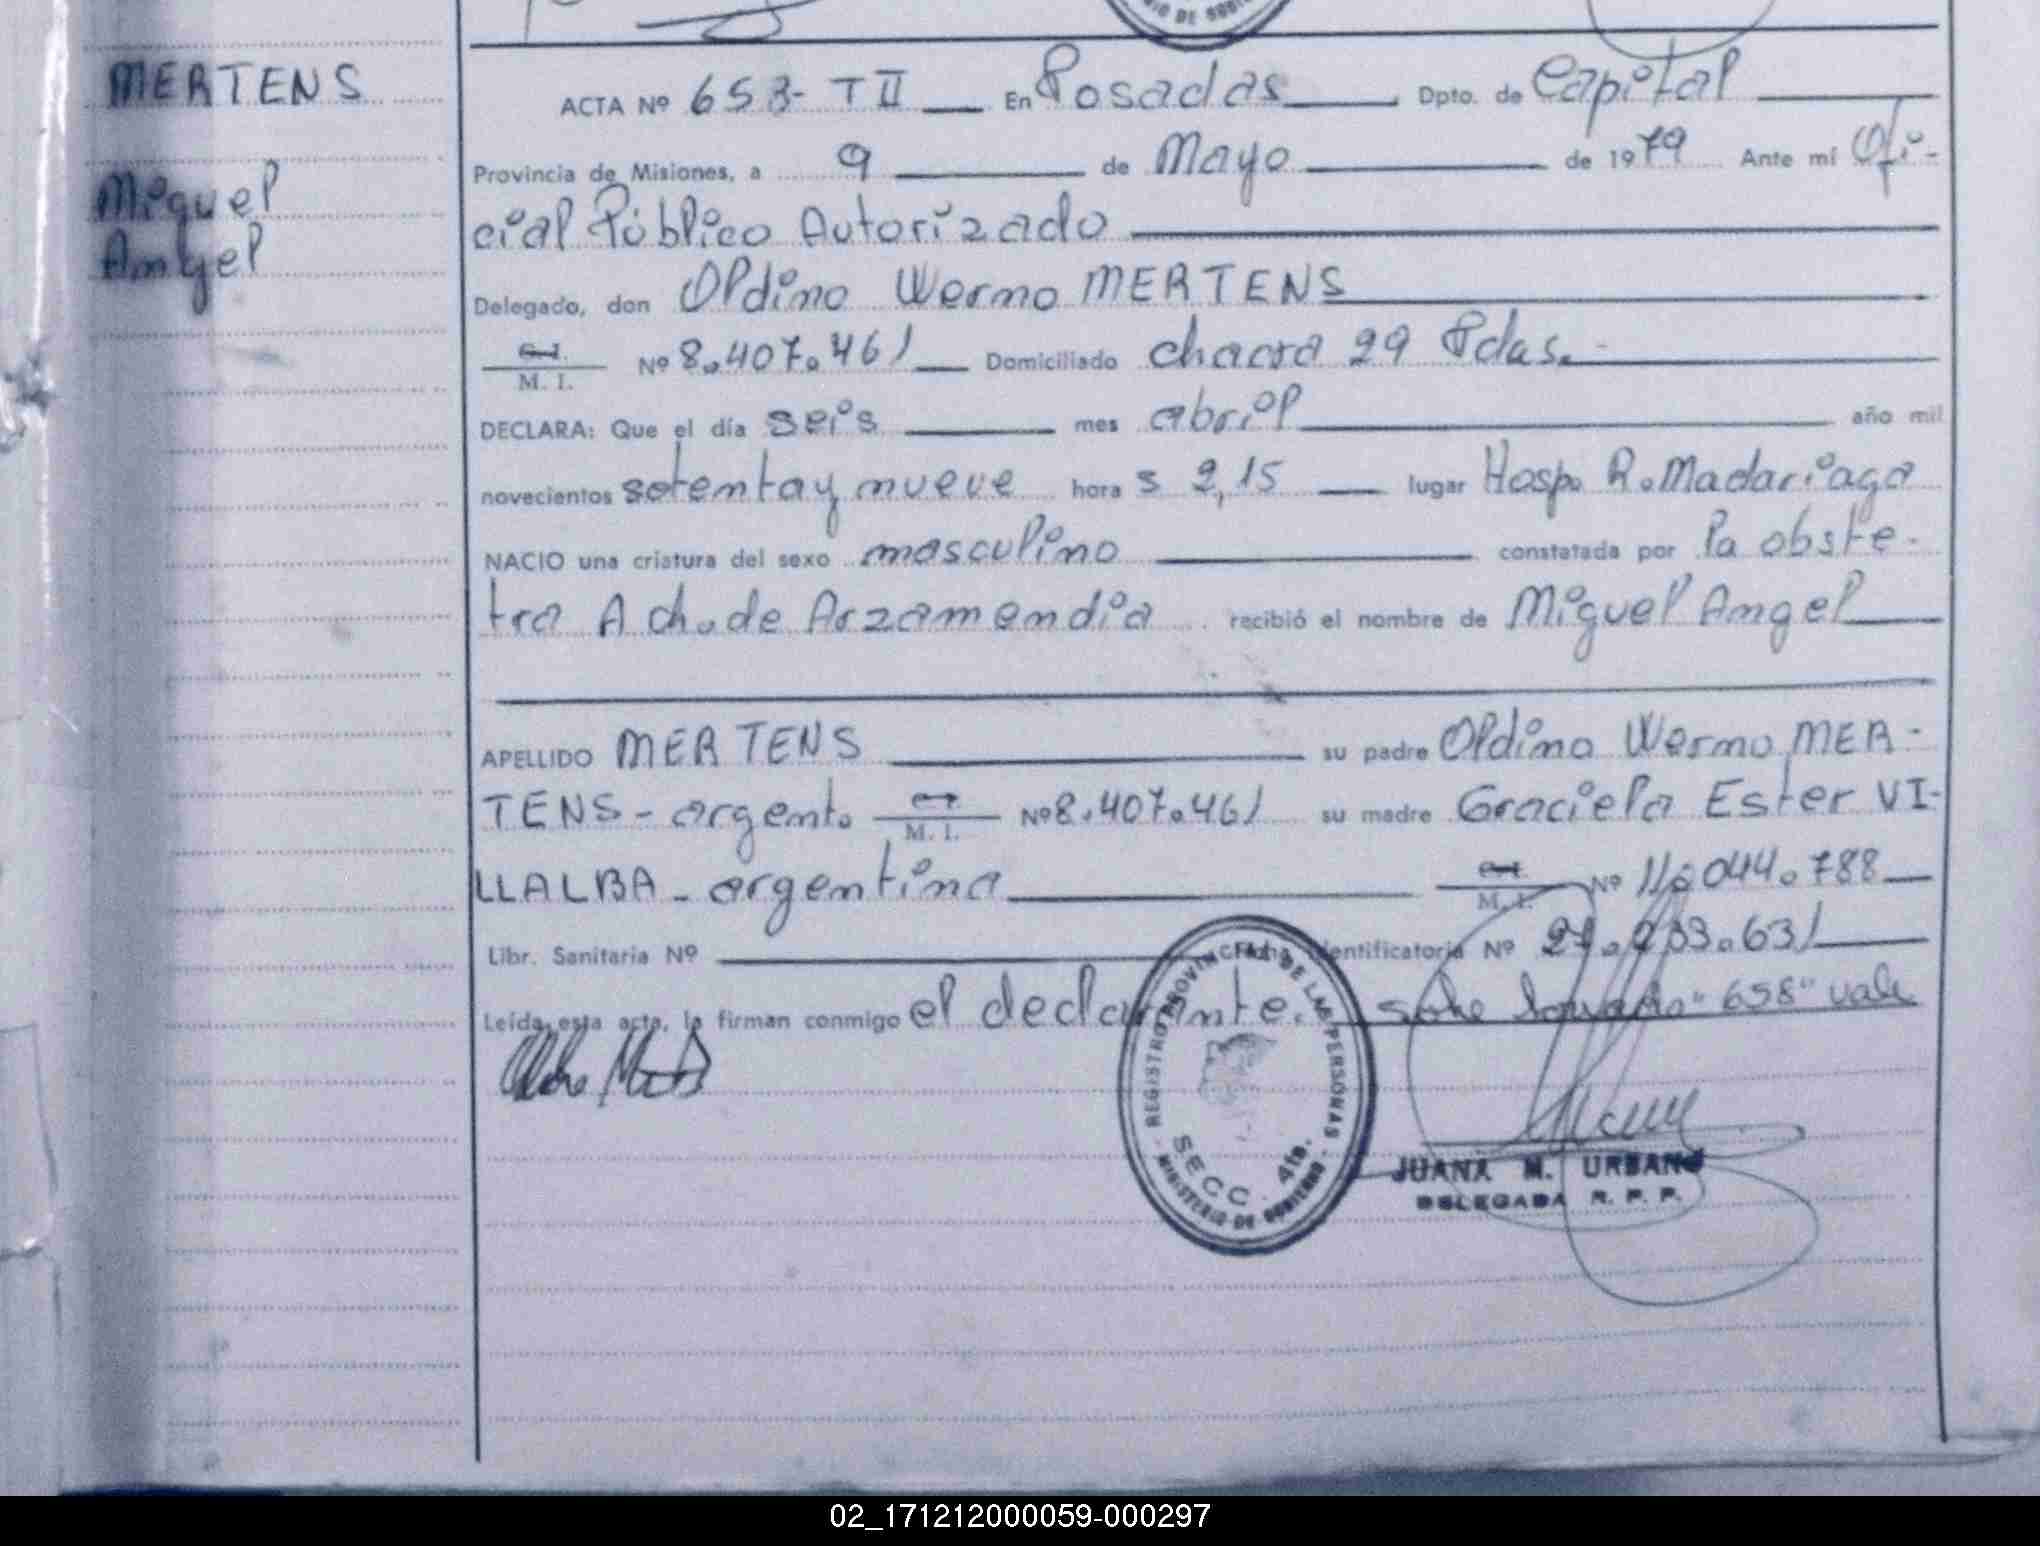 MERTENS
Miguel
Angel
ACTA Nº 658- T II En Posadas Dpto. de Capital
Provincia de Misiones, a 9 de Mayo de 1979 Ante mí Ofi-
cial Público Autorizado
Delegado, don Oldino Wermo MERTENS
M. I. Nº 8.407.461 Domiciliado chacra 29 Pdas.-
DECLARA: Que el día seis mes abril año mil
novecientos setenta y nueve hora s 2,15 lugar Hosp. R. Madariaga
NACIO una criatura del sexo masculino constatada por la obste-
tra A ch. de Arzamendia recibió el nombre de Miguel Angel
APELLIDO MERTENS su padre Oldino Wermo MER-
TENS - argent. M. I. Nº 8.407.461 su madre Graciela Ester VI-
LLALBA - argentina M. I. Nº 11.044.788
Libr. Sanitaria Nº Ficha Identificatoria Nº 631
Leída esta acta, la firman conmigo el declarante. sobre borrado "658" vale
REGISTRO PROVINCIAL DE LAS PERSONAS
SECC. 4ta.
MINISTERIO DE GOBIERNO
JUANA M. URBANO
DELEGADA R. P. P.
02_171212000059-000297